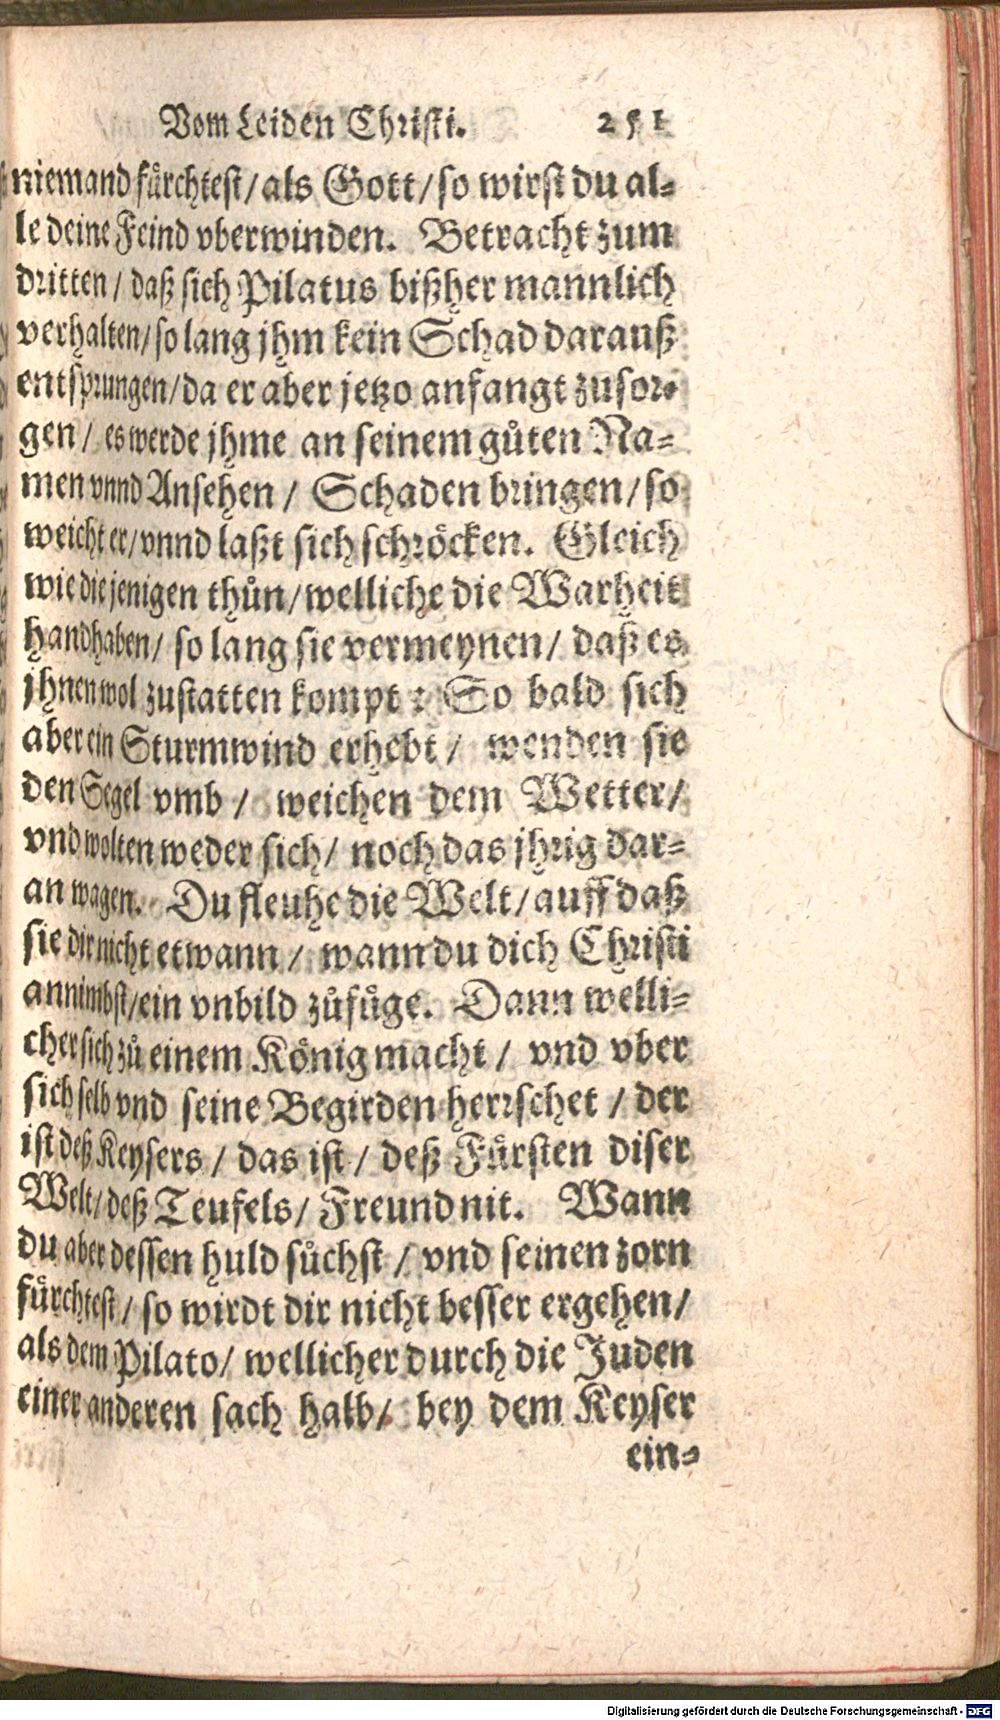 Vom Leiden Christi. 251
niemand fürchtest/ als Gott/ so wirst du al-
le deine Feind vberwinden. Betracht zum
dritten/ daß sich Pilatus bißher mannlich
verhalten/ so lang jhm kein Schad darauß
entsprungen/ da er aber jetzo anfangt zusor-
gen/ es werde jhme an seinem gůten Na-
men vnnd Ansehen/ Schaden bringen/ so
weicht er/ vnnd laßt sich schröcken. Gleich
wie die jenigen thůn/ welliche die Warheit
handhaben/ so lang sie vermeynen/ daß es
jhnen wol zustatten kompt: So bald sich
aber ein Sturmwind erhebt/ wenden sie
den Segel vmb/ weichen dem Wetter/
vnd wolten weder sich/ noch das jhrig dar-
an wagen. Du fleuhe die Welt/ auff daß
sie dir nicht etwann/ wann du dich Christi
annimbst/ ein vnbild zůfůge. Dann welli-
cher sich zů einem König macht/ vnd vber
sich selb vnd seine Begirden herrschet/ der
ist deß Keysers/ das ist/ deß Fürsten diser
Welt/ deß Teufels/ Freund nit. Wann
du aber dessen huld sůchst/ vnd seinen zorn
fürchtest/ so wirdt dir nicht besser ergehen/
als dem Pilato/ wellicher durch die Juden
einer anderen sach halb/ bey dem Keyser
ein-
Digitalisierung gefördert durch die Deutsche Forschungsgemeinschaft - DFG